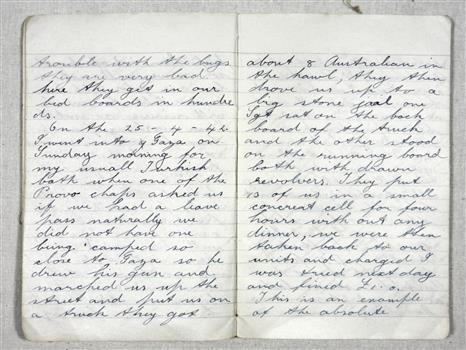 trouble with the bugs
they are very bad
here they get in our
bed boards in hundre
ds.
On the 25 - 4 - 42
I went into Gaza on
Sunday morning for
my usuall Turkish
bath when one of the
Provo chaps asked us
if we had a leave
pass naturally we
did not have one
being camped so
close to Gaza so he
drew his gun and
marched us up the
street and put us on
a truck they got
about 8 Australian in
the hawl, they then
drove us up to a
big stone joal one
sat on the back
board of the truck
and the other stood
on the running board
both with drawn
revolvers. They put
of us in a small
concreat cell for four
hours with out any
dinner, we were then
taken back to our
units and charged I
was tried next day
and fined
This is an example
of the absolute